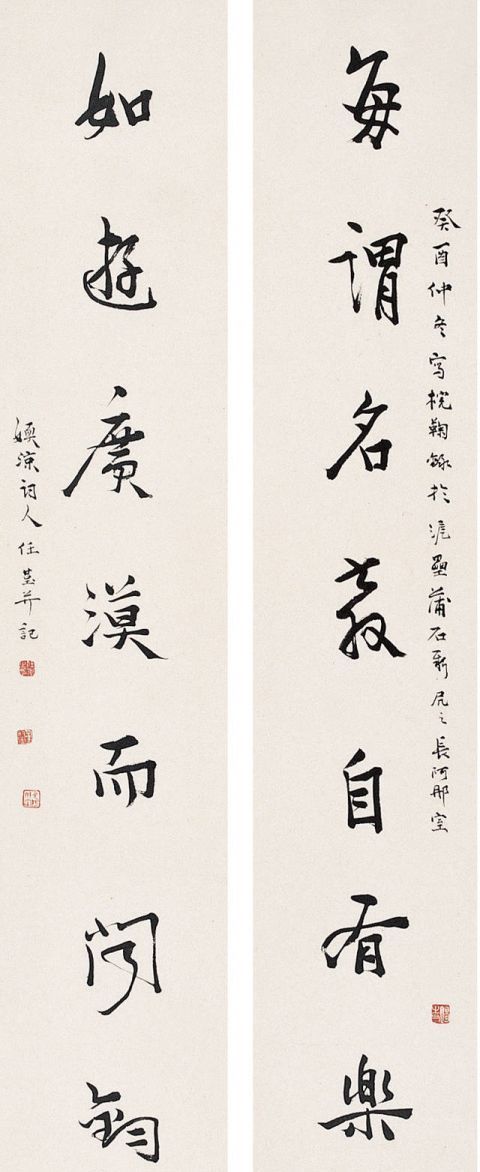 癸酉仲冬寫梡鞠錄於滬壘蒲石新凥之長阿那室
每謂名教自有樂
如遊廣漠而聞鈞
媆涼詞人任堇并記